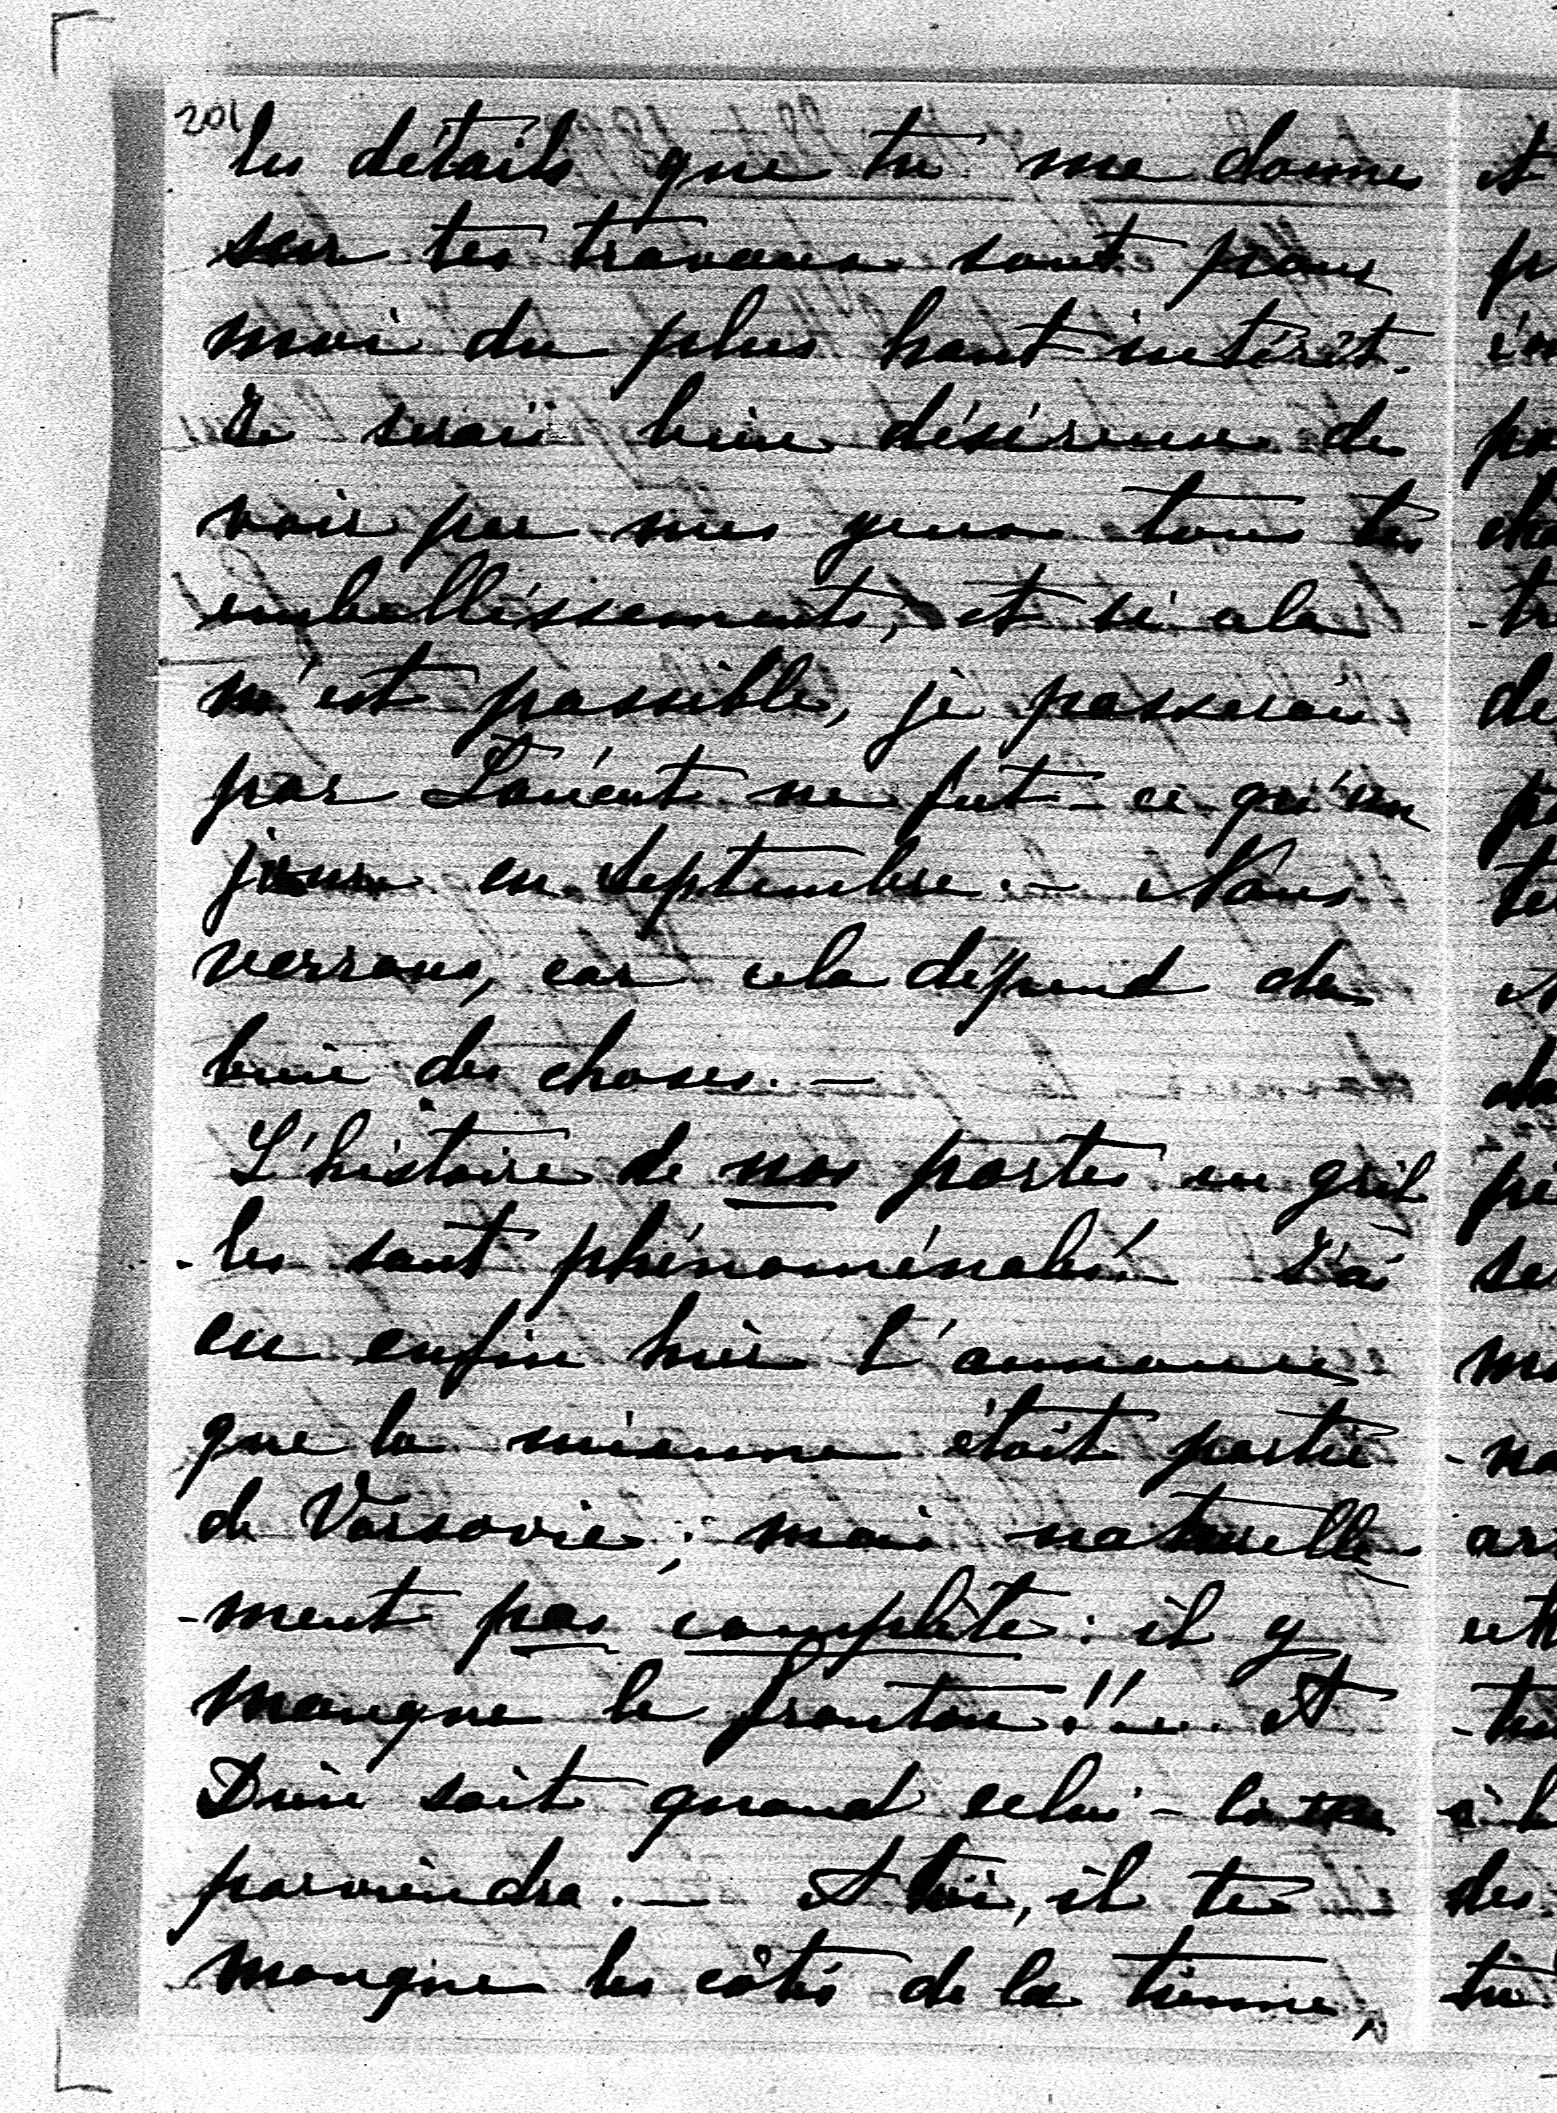 201
les détails que tu me donnes
sur tes travaux sont pour
moi du plus haut intérêt.
Je serais bien désireux de
voir par mes yeux tous tes
embellissements, et si cela
m'est possible, je passerai
par ne fut-ce qu'un
jour en septembre. - Nous
verrons, car cela dépend de
bien des choses. -
L'histoire de nos portes en gril
-les sont phénoménales! J'ai
eu enfin hier l'annonce
que la mienne était partie
de Varsovie; mais naturelle
-ment pas complète: il y
manque le fronton!!... Et
Dieu sait quand celui-là me
parviendra. - Et toi, il te
manque les côtés de la tienne
et
de
des